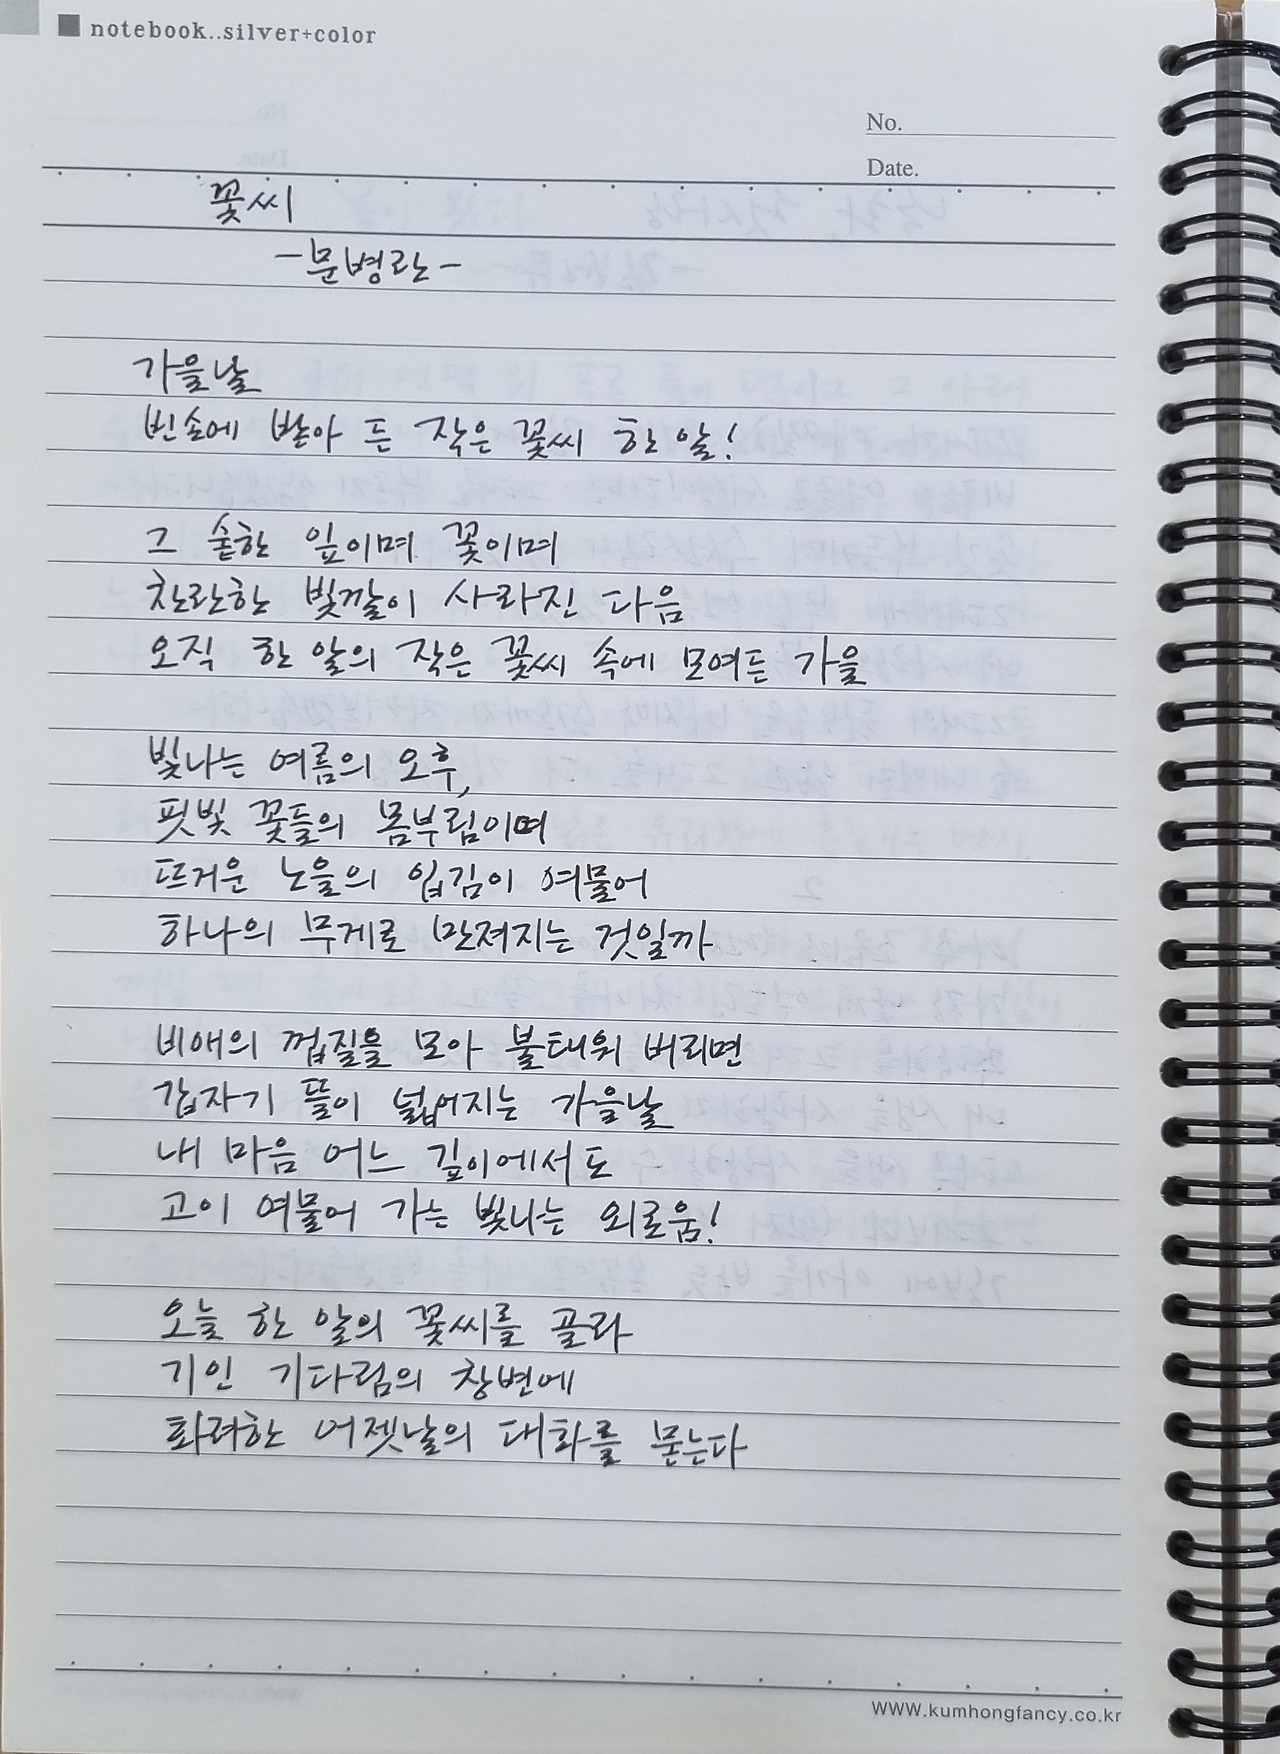 notebook..silver+color
No.
Date.
꽃씨
-문병란-
가을날
빈손에 받아 든 작은 꽃씨 한 알!
그 숱한 잎이며 꽃이며
찬란한 빛깔이 사라진 다음
오직 한 알의 작은 꽃씨 속에 모여든 가을
빛나는 여름의 오후,
핏빛 꽃들의 몸부림이며
뜨거운 노을의 입김이 여물어
하나의 무게로 만져지는 것일까
비애의 껍질을 모아 불태워 버리면
갑자기 뜰이 넓어지는 가을날
내 마음 어느 깊이에서도
고이 여물어 가는 빛나는 외로움!
오늘 한 알의 꽃씨를 골라
기인 기다림의 창변에
화려한 어젯날의 대화를 묻는다
www.kumhongfancy.co.kr